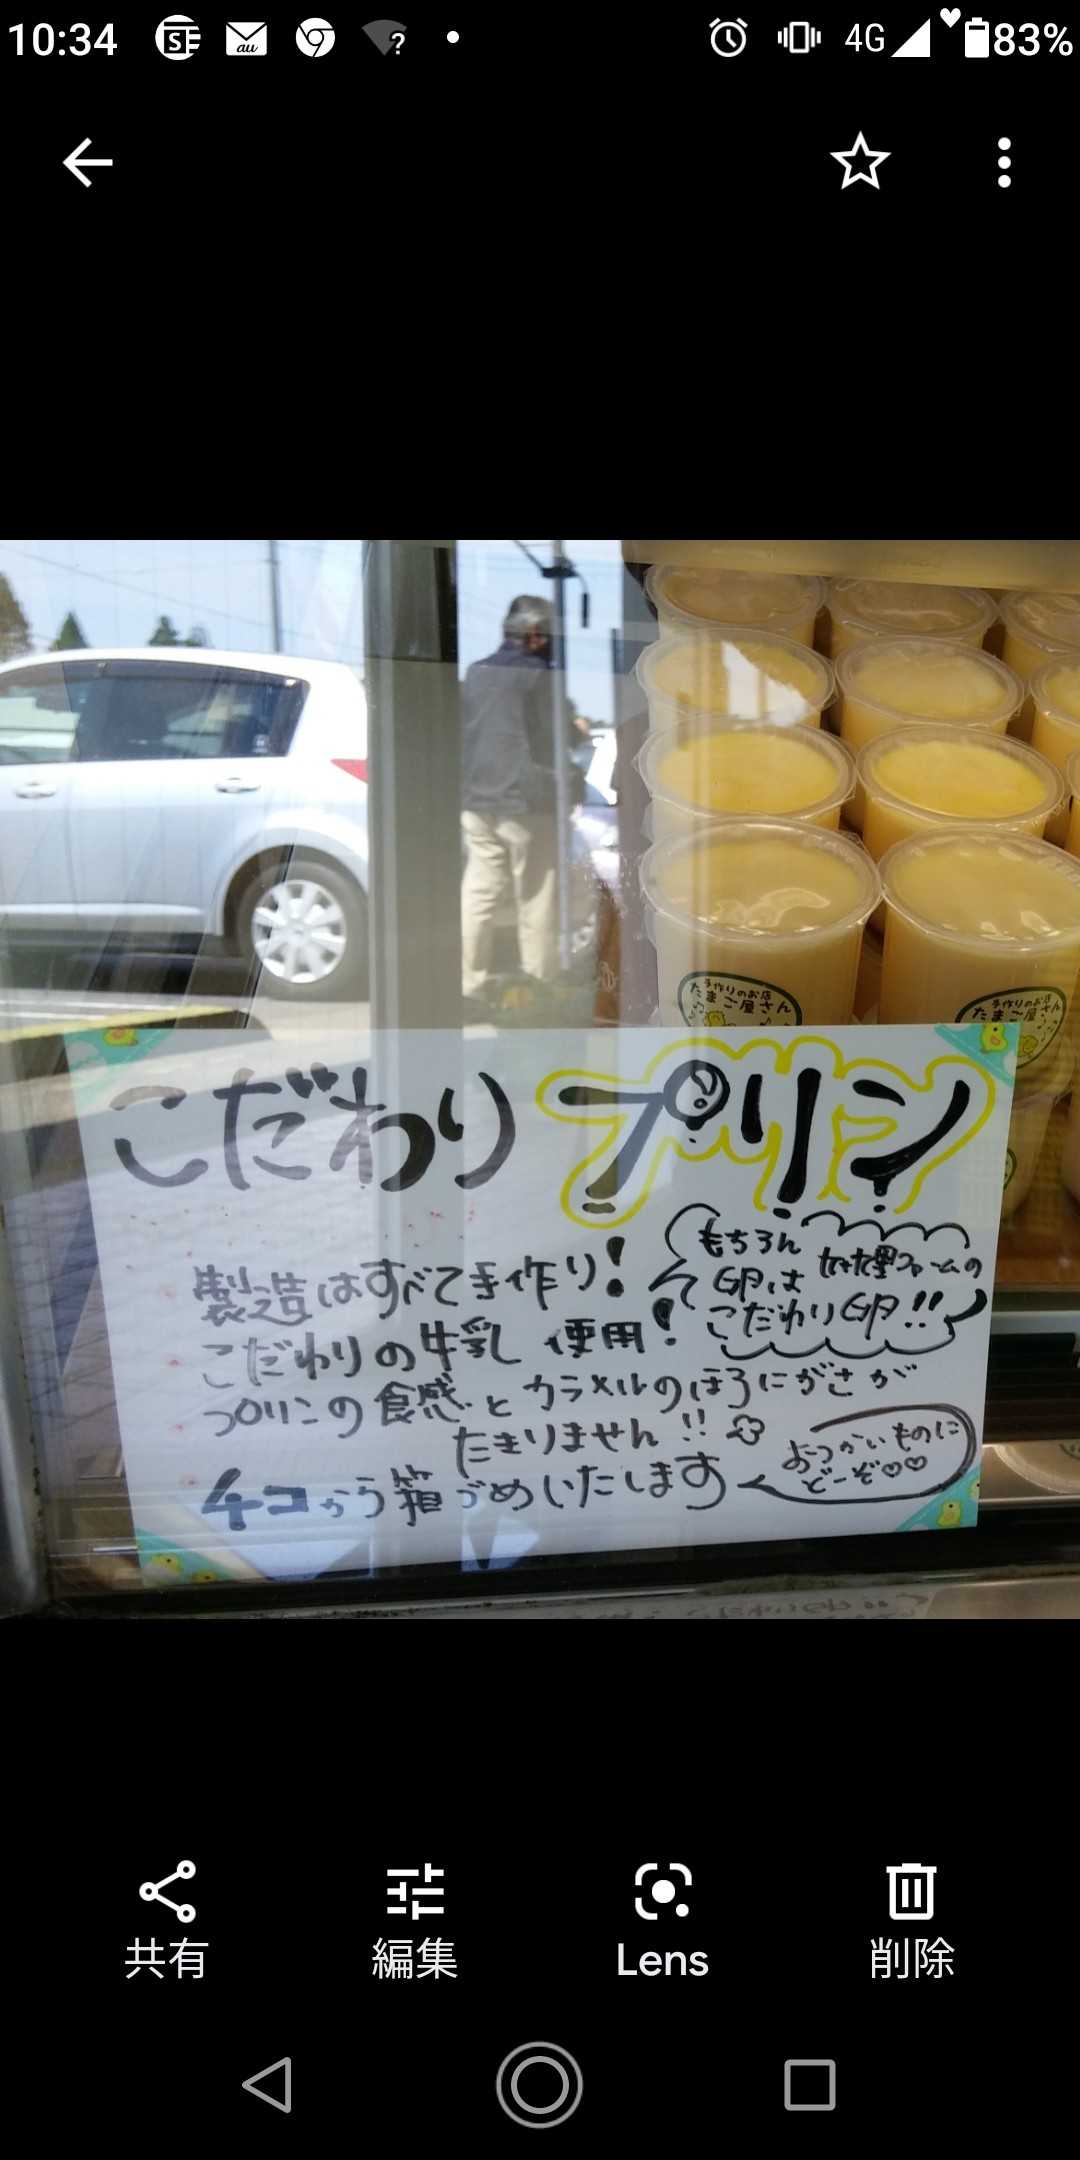 10:34
au
?
4G
83%
手作りのお店
たまご屋さん
手作りのお店
たまご屋さん
こだわりプリン
製造はすべて手作り!
こだわりの牛乳 使用!
プリンの食感とカラメルのほろにがさが
たまりません!!
4コから箱づめいたします
もちろん
卵は
ファームの
こだわり卵!!
おつかいものに
どーぞ♡♡
共有
編集
Lens
削除